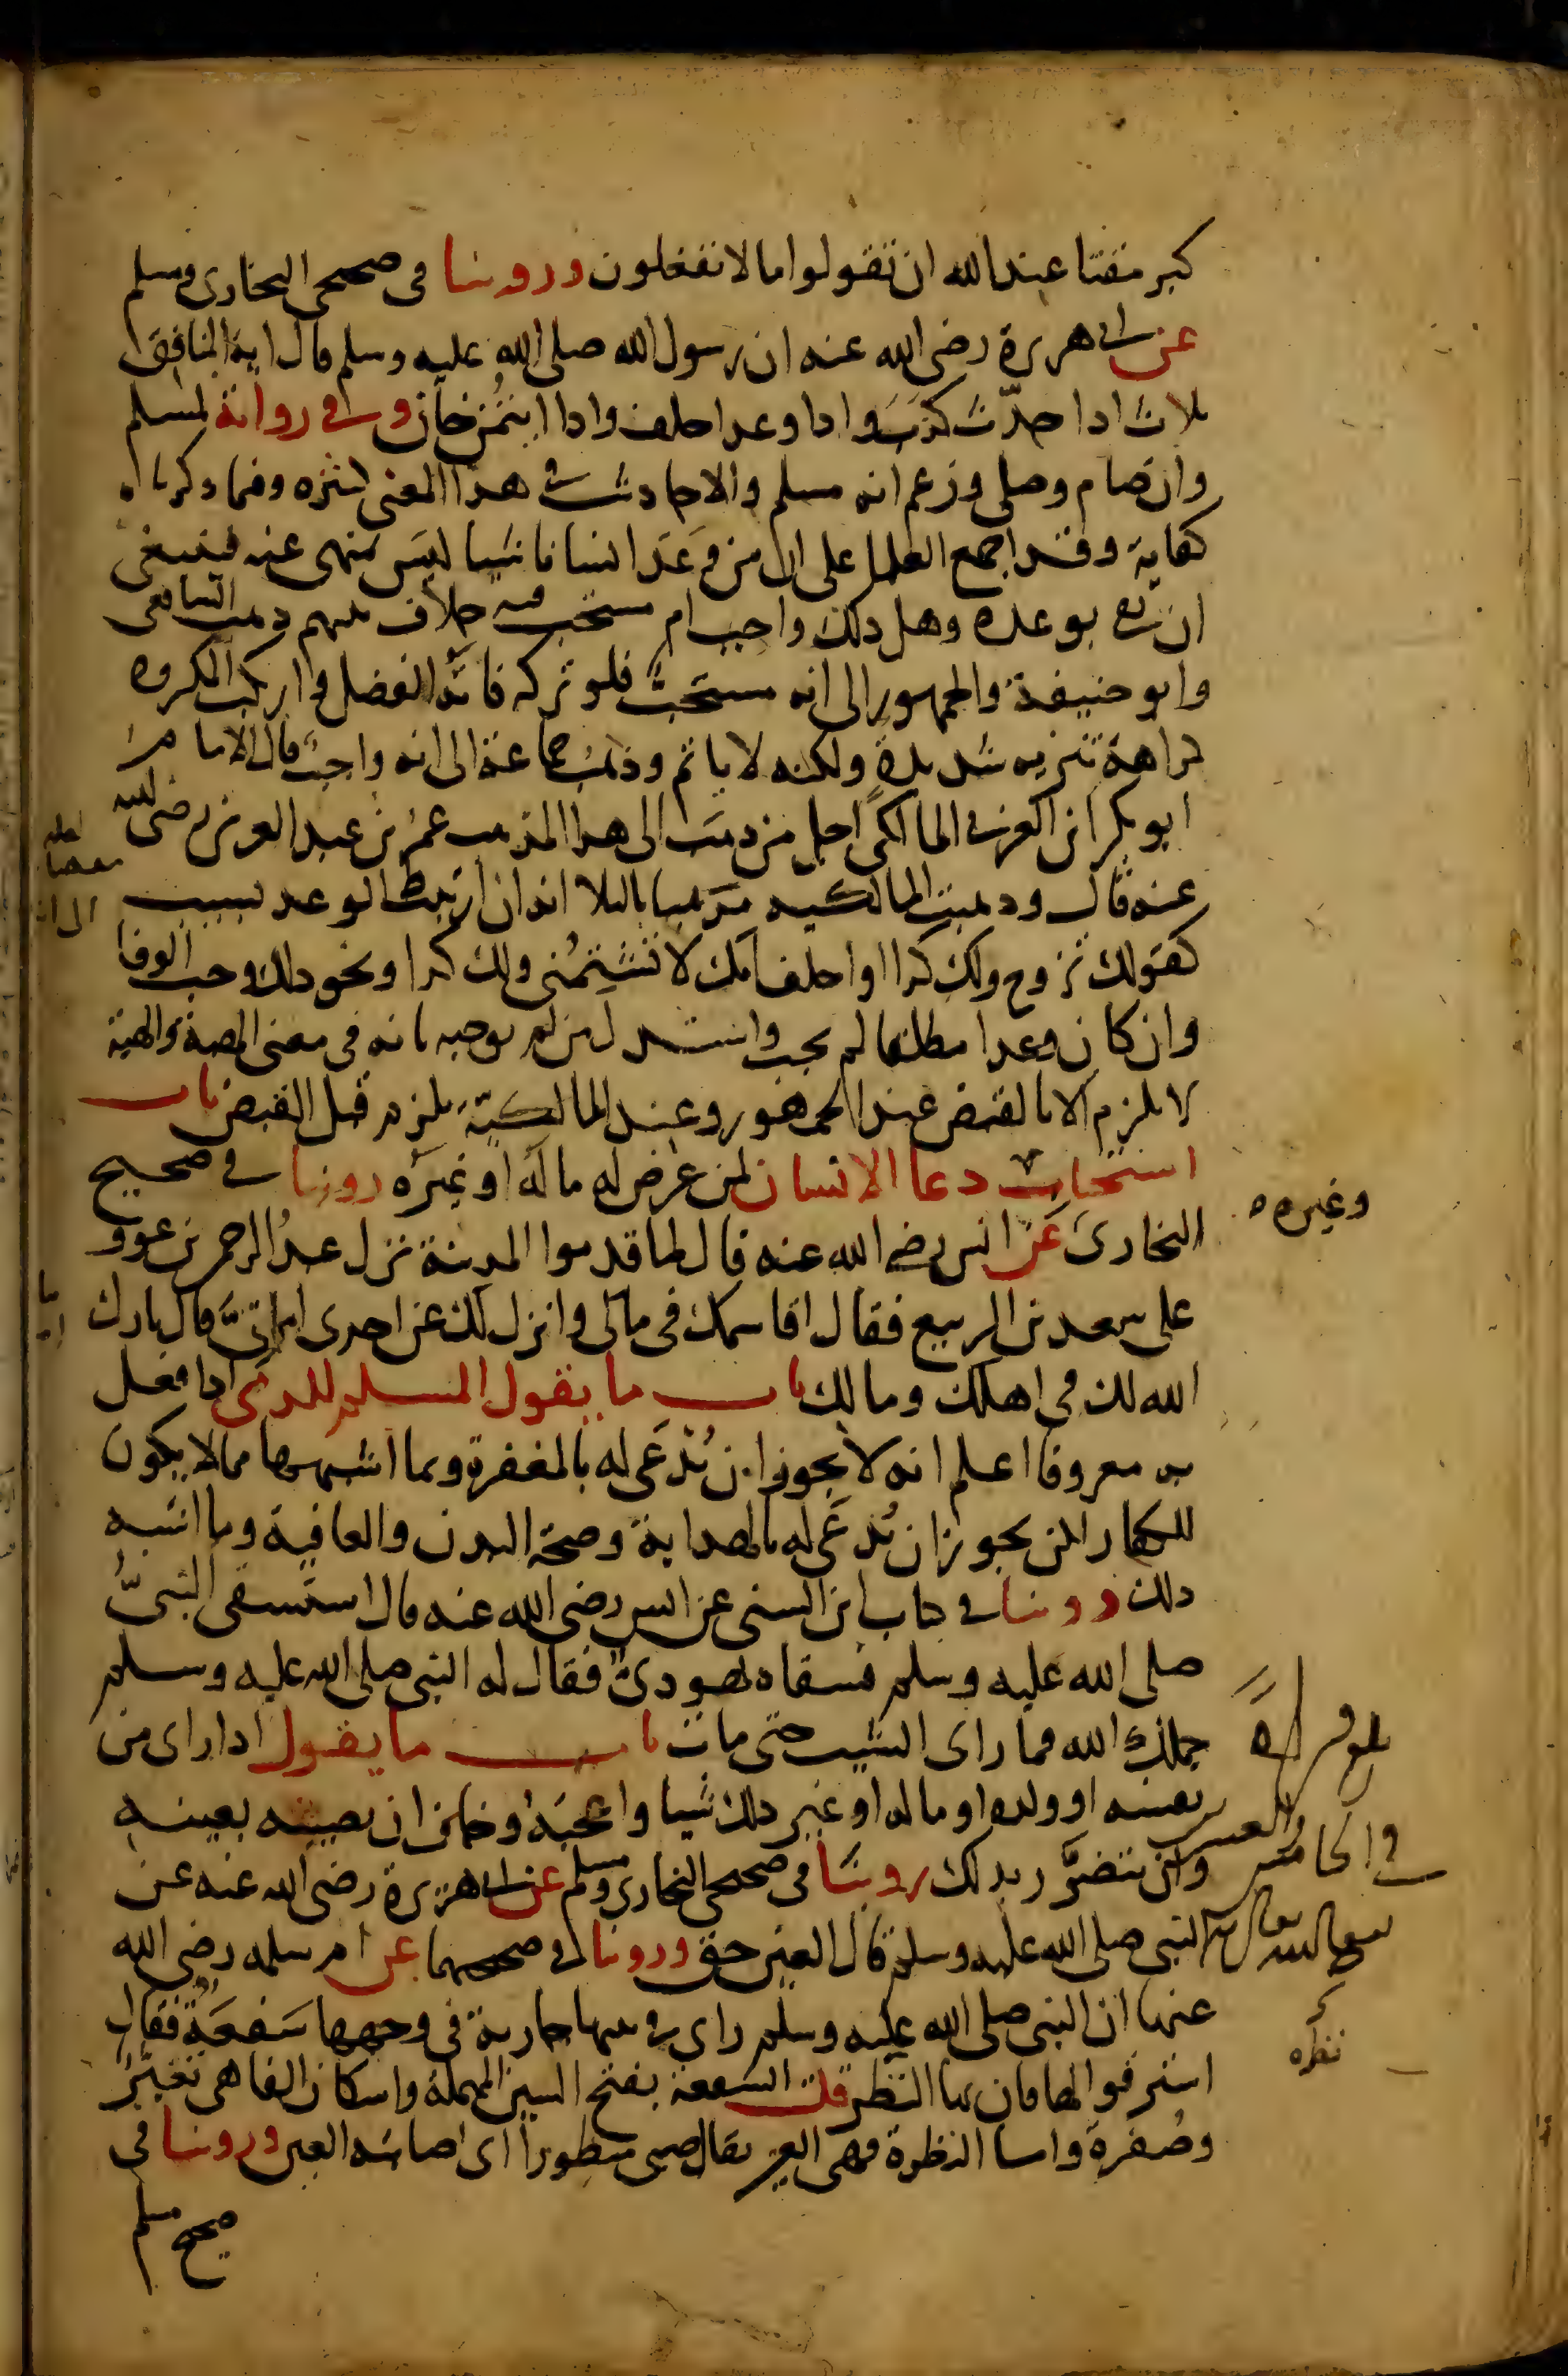 كبر مقتا عند الله ان تقولوا ما لا تفعلون وروينا في صحيحي البخاري ومسلم
عن ابي هريرة رضي الله عنه ان رسول الله صلى الله عليه وسلم قال اية المنافق
ثلاث اذا حدّث كذب واذا وعد اخلف واذا ايتُمن خان وفي رواية لمسلم
وان صام وصلى وزعم انه مسلم والاحاديث في هذا المعنى كثيرة وفيما ذكرناه
كفاية وقد اجمع العلما على ان من وَعَد انسانا شيا ليس بمنهي عنه فينبغي
ان يفي بوعده وهل ذلك واجب ام مستحب فيه خلاف بينهم ذهب الشافعي
وابو حنيفة والجمهور الى انه مستحبّ فلو تركه فاته الفضل وارتكب المكروه
كراهة تنزيه شديدة ولكنه لا ياثم وذهب جماعة الى انه واجب قال الامام
ابو بكر ابن العربي المالكي اجل من ذهب الى هذا المذهب عمر بن عبد العزيز رضي الله
عنه قال وذهبت المالكيه مذهبا ثالثا انه ان ارتبط الوعد بسبب
كقولك تزوج ولك كذا او احلف انك لا تشتمُني ولك كذا ونحو ذلك وجب الوفا
وان كان وعدا مطلقا لم يجب واستدل من لم يوجبه بانه في معنى الهبة والهبة
لا يلزم الا بالقبض عند الجمهور وعند المالكيّة يلزم قبل القبض باب
استحباب دعا الانسان لمن عرض له ماله او غيره روينا في صحيح
وغيره
البخاري عن انس رضي الله عنه قال لما قدموا المدينة نزل عبدُ الرحمن بن عوف
على سعد بن الربيع فقال اقاسمك في مالي وانزل لك عن احدى امراتيَّ قال بارك
الله لك في اهلك ومالك باب ما يقول المسلم للذمي اذا فعل
به معروفا اعلم انه لا يجوز ان يُدعَى له بالمغفرة وما اشبهها مما لا يكون
للكفار لكن يجوز ان يُدعَى له بالهداية وصحة البدن والعافية وما اشبه
ذلك روينا في كتاب ابن السني عن انس رضي الله عنه قال استسقى النبيُّ
صلى الله عليه وسلم فسقاه يهوديٌ فقال له النبي صلى الله عليه وسلم
جملك الله فما راى الشيب حتى مات باب ما يقول اذا راى من
نفسه او ولده او ماله او غير ذلك شيا واعجبَهُ وخاف ان يصيبه بعينه
وان يتضرَّر بذلك روينا في صحيحي البخاري ومسلم عن ابي هريرة رضي الله عنه عن
النبي صلى الله عليه وسلم قال العين حق وروينا في صحيحهما عن ام سلمه رضي الله
عنها ان النبي صلى الله عليه وسلم راى في بيتها جارية في وجهها سَفعَةٌ فقال
استرقوا لها فان بها النظرة قلت السفعة بفتح السين المهملة واسكان الفا هي تغيّرٌ
نظره
وصُفرة واما النظرة فهي العين يقال صبي منظورا اى اصابته العين وروينا في
صحيح مسلم